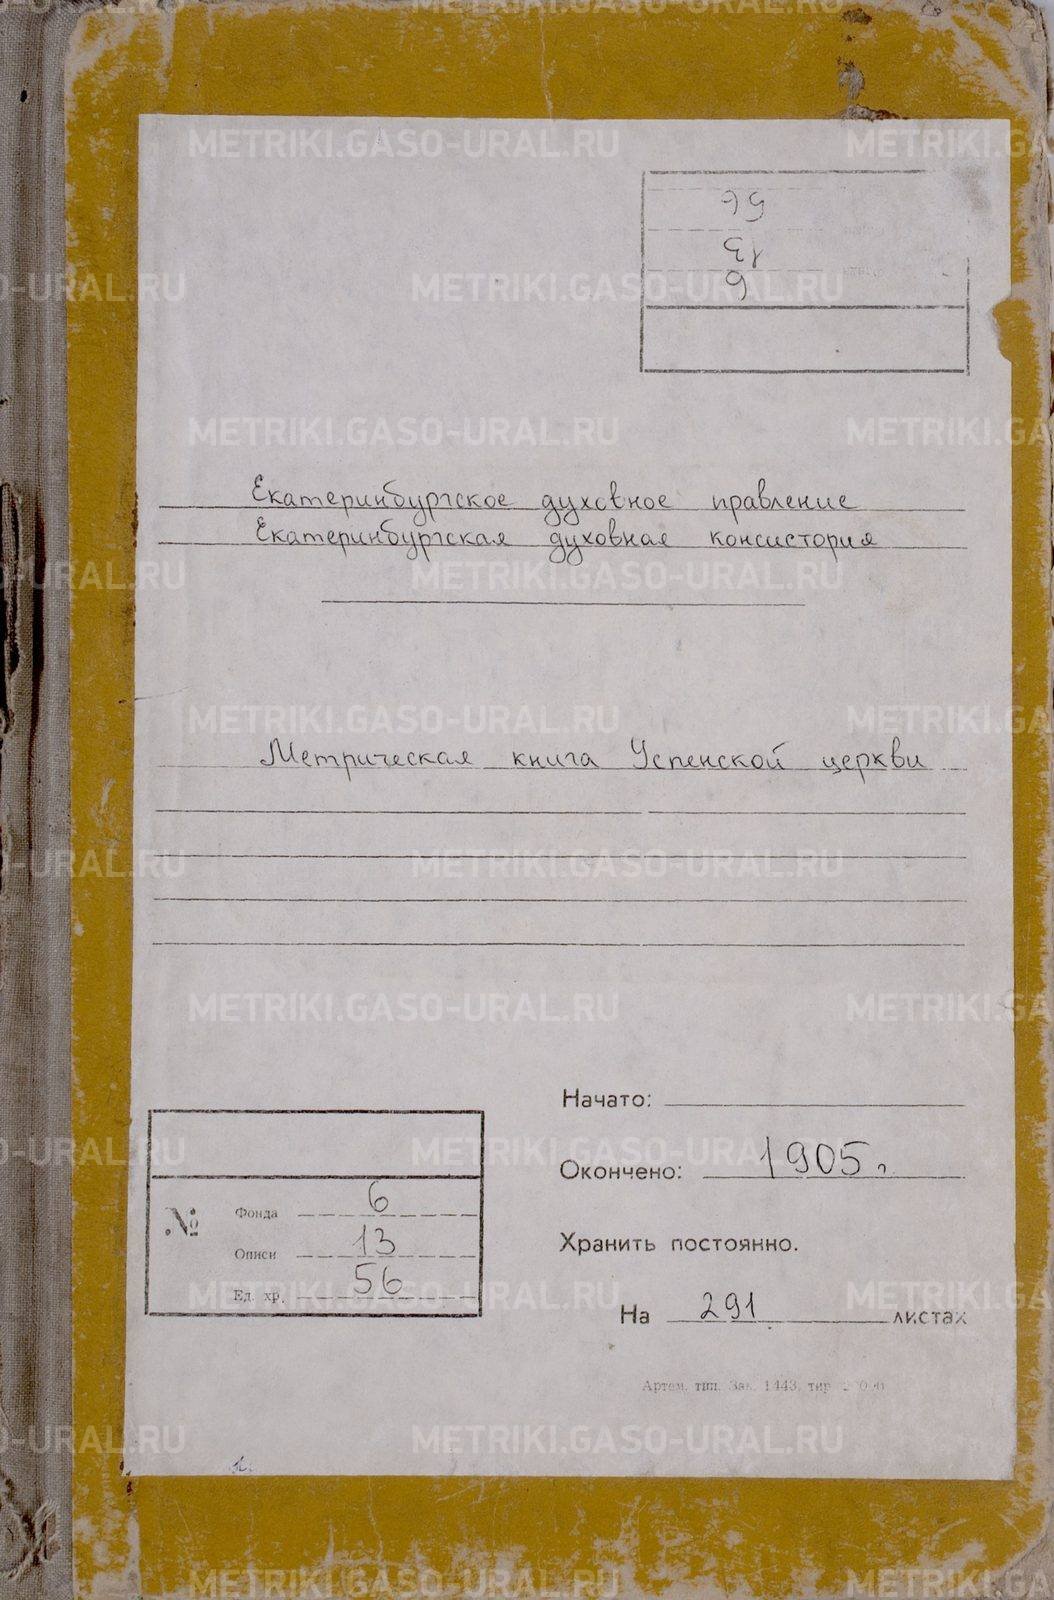 METRIKI.GASO-URAL.RU
56
13
6
Екатеринбургское духовное правление
Екатеринбургская духовная консистория
Метрическая книга Успенской церкви
Начато:
Окончено: 1905 г.
№
Фонда 6
Описи 13
Ед. хр. 56
Хранить постоянно.
На 291 листах
Артем. тип. Зак. 1443, тир.